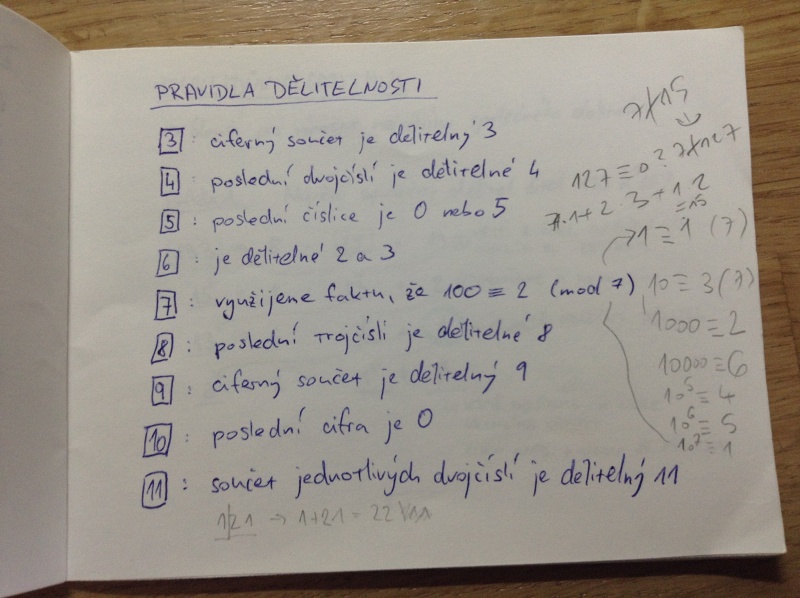 PRAVIDLA DĚLITELNOSTI
3 : ciferný součet je dělitelný 3
4 : poslední dvojčíslí je dělitelné 4
5 : poslední číslice je 0 nebo 5
6 : je dělitelné 2 a 3
7 : využijeme faktu, že 100 ≡ 2 (mod 7)
8 : poslední trojčíslí je dělitelné 8
9 : ciferný součet je dělitelný 9
10 : poslední cifra je 0
11 : součet jednotlivých dvojčíslí je dělitelný 11
1|21 → 1+21 = 22
7∤15
⇒ 7∤127
127 ≡ 0?
7.1+2.3+1.2
=15
→ 1 ≡ 1 (7)
10 ≡ 3 (7)
1000 ≡ 2
10000 ≡ 6
10⁵ ≡ 4
10⁶ ≡ 5
10⁷ ≡ 1